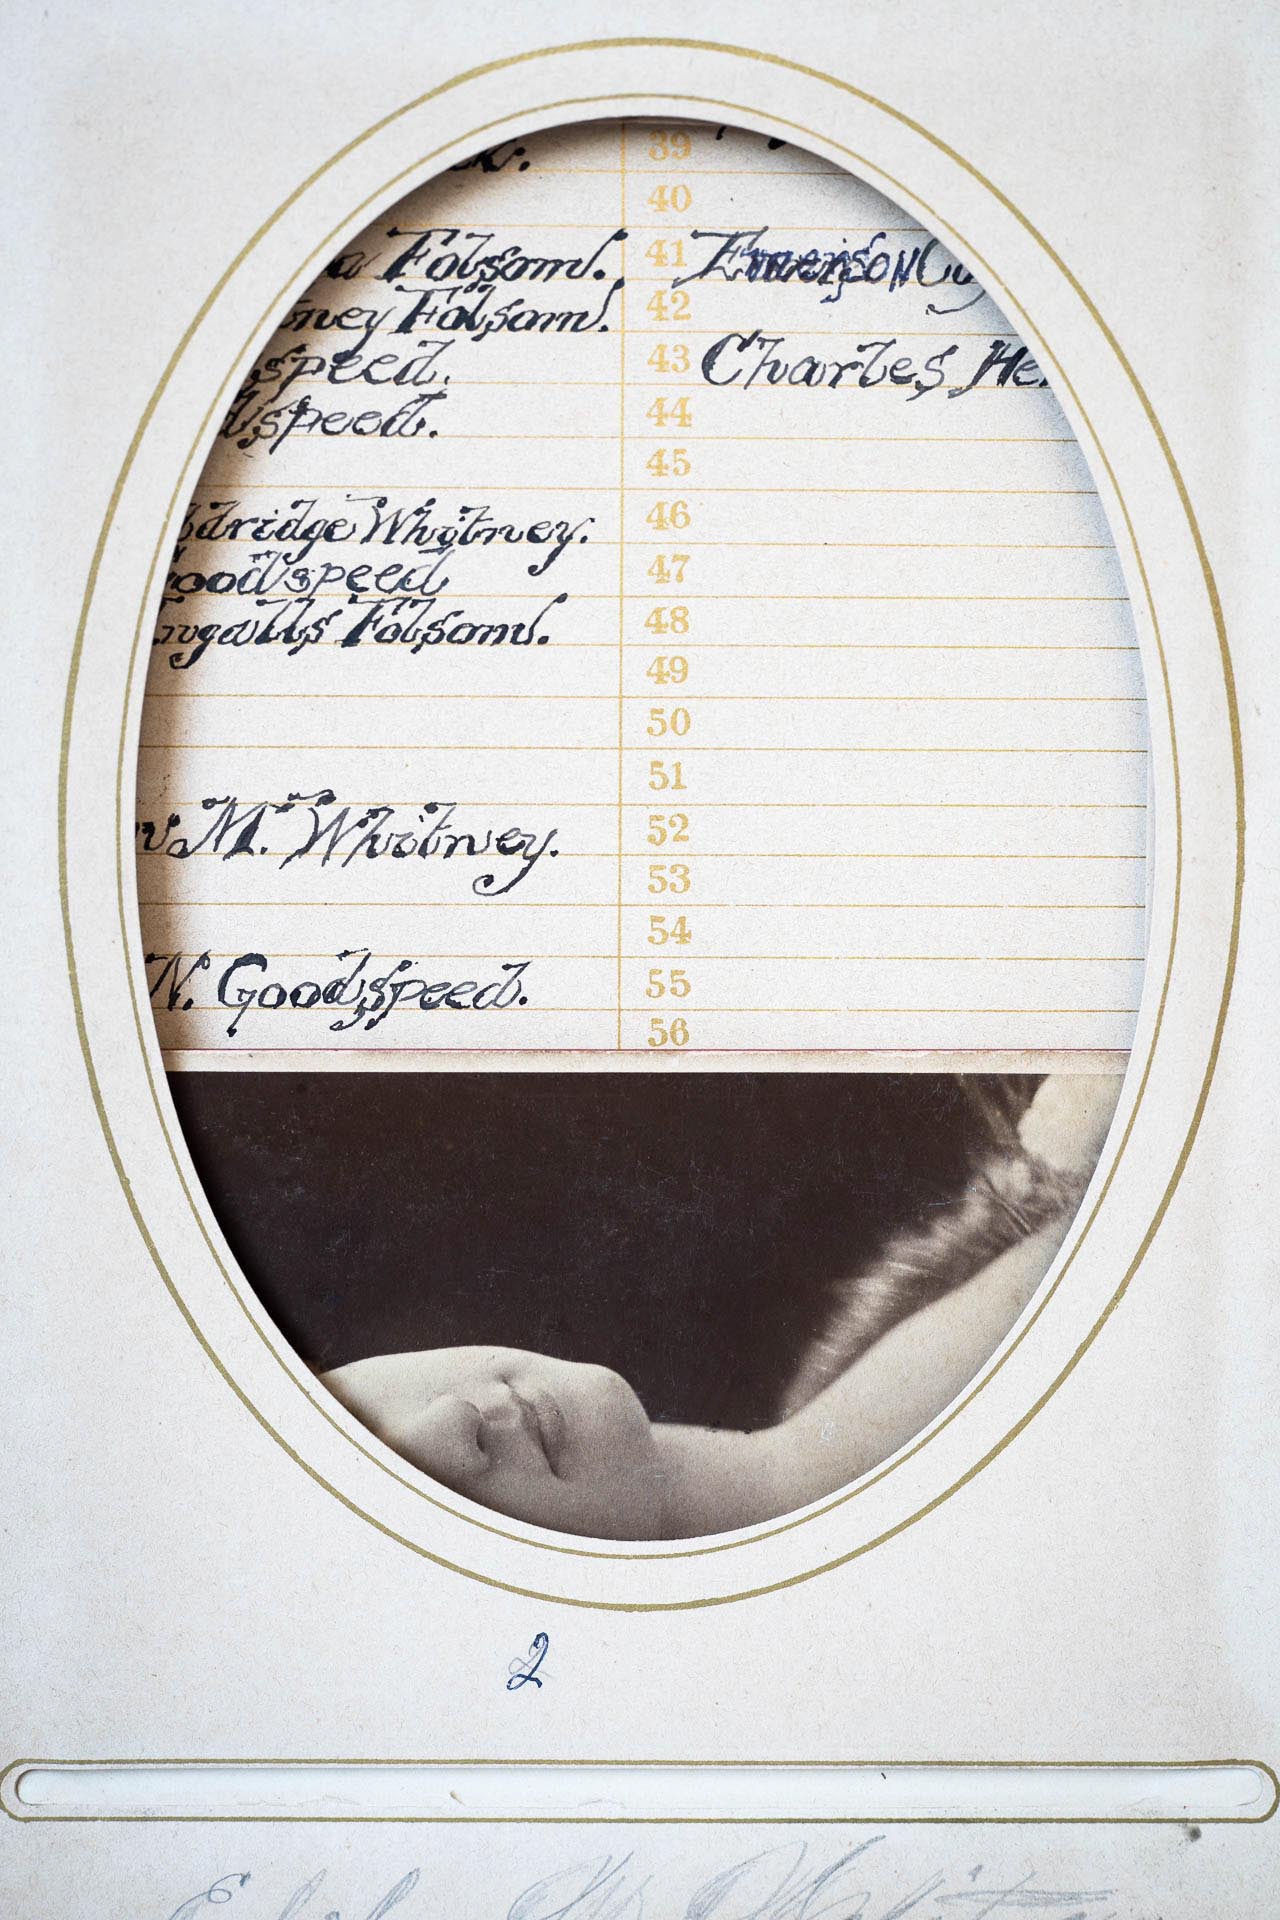 39
40
Folsom. 41 Emerson
tney Folsom. 42
speed. 43 Charles He
dspeed. 44
45
ldridge Whitney. 46
oodspeed 47
ngalls Folsom. 48
49
50
51
M. Whitney. 52
53
54
N. Goodspeed. 55
56
2